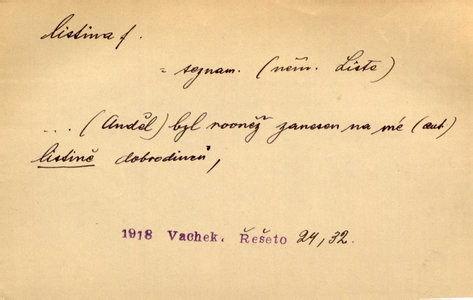 listina f.
= seznam. (něm. Liste)
... (Anděl) byl rovněž zanesen na mé (aut)
listině dobrodinců,
1918 Vachek. Řešeto 24, 32.